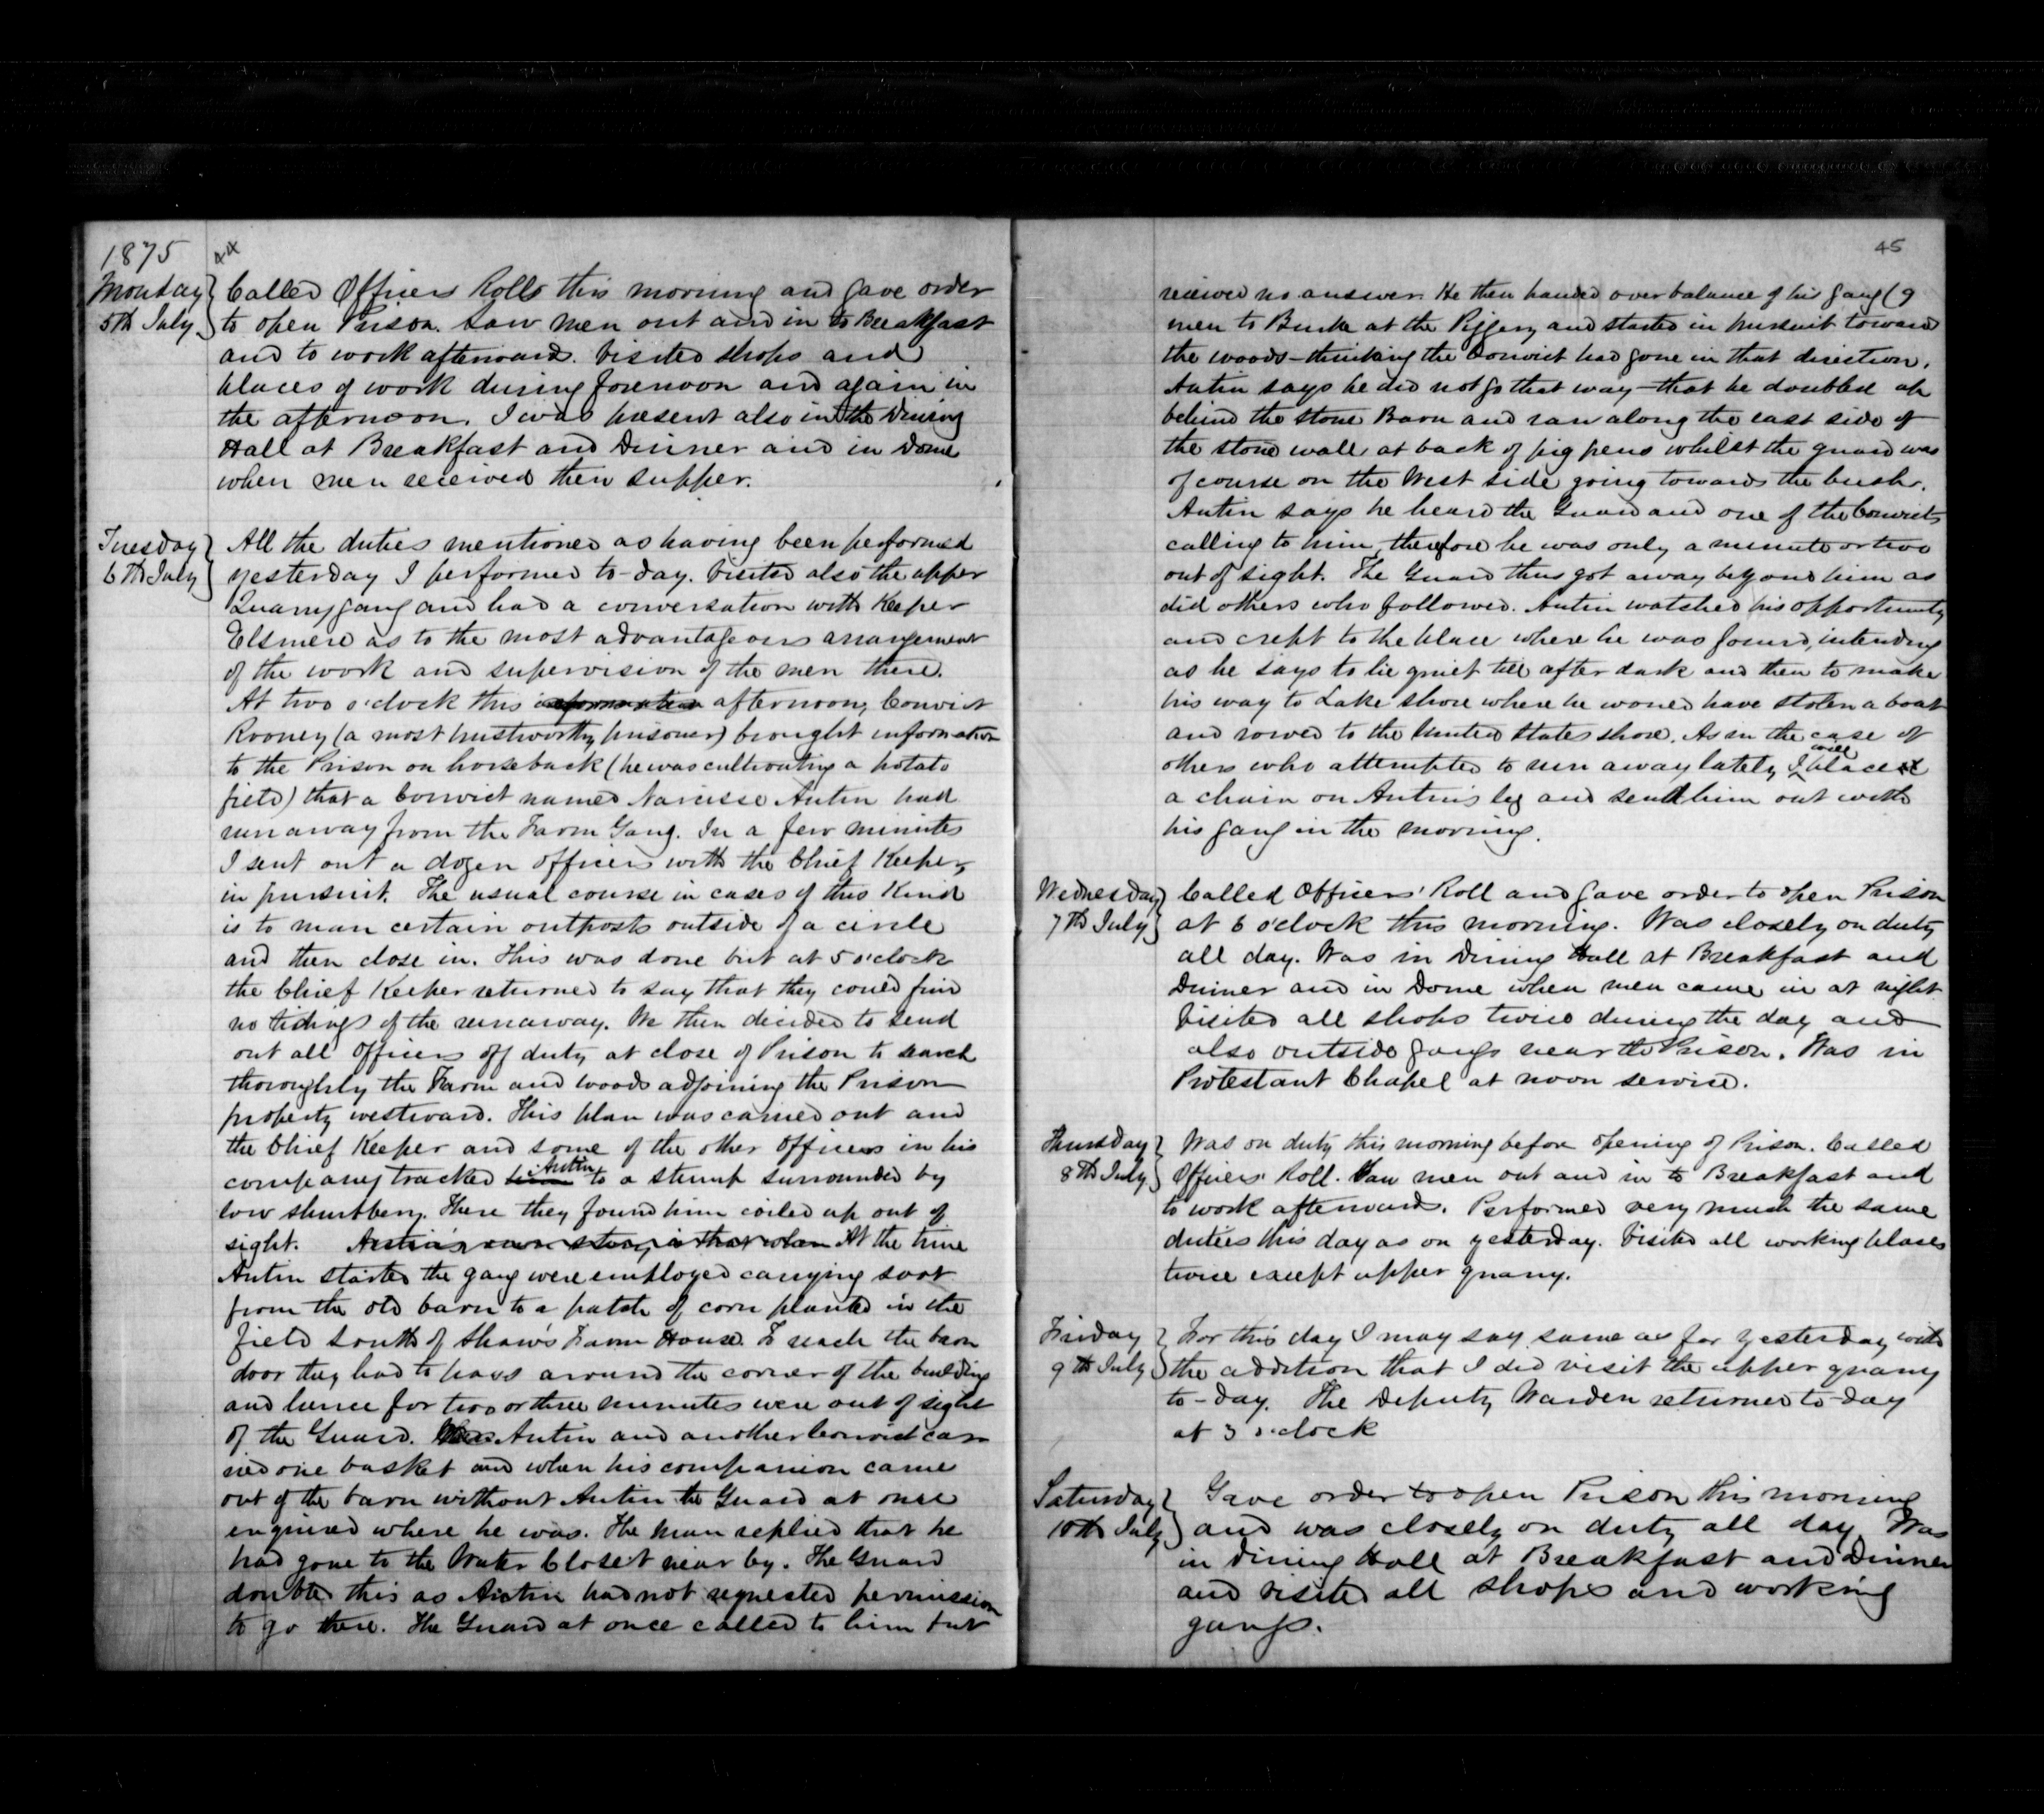 1875
Monday
5th July
Called Officers Rolls this morning and gave order
to open Prison. Saw men out and in to Breakfast
and to work afterward. Visited shops and
places of work during forenoon and again in
the afternoon. I was present also in the Dining
Hall at Breakfast and Dinner and in Dome
when men received their supper.
Tuesday
6th July
All the duties mentioned as having been performed
yesterday I performed to-day. Visited also the upper
Quarry gang and had a conversation with Keeper
Elsmere as to the most advantageous arrangement
of the work and supervision of the men there.
At two o'clock this information afternoon, Convict
Rooney (a most trustworthy prisoner) brought information
to the Prison on horseback (he was cultivating a potato
field) that a Convict named Narcisse Antin had
run away from the Farm Gang. In a few minutes
I sent out a dozen officers with the Chief Keeper,
in pursuit. The usual course in cases of this Kind
is to man certain outposts outside of a circle
and then close in. This was done but at 5 o'clock
the Chief Keeper returned to say that they could find
no tidings of the runaway. We then decided to send
out all Officers off duty at close of Prison to search
thoroughly the Farm and woods adjoining the Prison
property westward. This plan was carried out and
the Chief Keeper and some of the other Officers in his
company tracked him Antin to a stump surrounded by
low shrubbery. There they found him coiled up out of
sight. Antin's own story is that when At the time
Antin started the gang were employed carrying soot
from the old barn to a patch of corn planted in the
field south of Shaw's Farm House. To reach the barn
door they had to pass around the corner of the building
and hence for two or three minutes were out of sight
of the Guard. Antin and another Convict car
ried one basket and when his companion came
out of the barn without Antin the Guard at once
enquired where he was. The man replied that he
had gone to the Water Closet near by. The Guard
doubted this as Antin had not requested permission
to go there. The Guard at once called to him but
45
received no answer. He then handed over balance of his gang (9
men to Burke at the Piggery and started in pursuit toward
the woods - thinking the Convict had gone in that direction.
Antin says he did not go that way - that he doubled up
behind the stone Barn and ran along the east side of
the stone wall, at back of pig pens whilst the guard was
of course on the West side going towards the bush.
Antin says he heard the Guard and one of the Convicts
calling to him, therefore he was only a minute or two
out of sight. The Guard thus got away beyond him as
did others who followed. Antin watched his opportunity
and crept to the place where he was found, intending
as he says to lie quiet till after dark and then to make
his way to Lake shore where he would have stolen a boat
and rowed to the United States shore. As in the case of
others who attempted to run away lately I will place
a chain on Antin's leg and send him out with
his gang in the morning.
Wednesday
7th July
Called Officers' Roll and gave order to open Prison
at 6 o'clock this morning. Was closely on duty
all day. Was in Dining Hall at Breakfast and
Dinner and in Dome when men came in at night.
Visited all shops twice during the day and
also outside gangs near the Prison. Was in
Protestant Chapel at noon service.
Thursday
8th July
Was on duty this morning before opening of Prison. Called
Officers' Roll. Saw men out and in to Breakfast and
to work afterward. Performed very much the same
duties this day as on yesterday. Visited all working places
twice except upper quarry.
Friday
9th July
For this day I may say same as for yesterday with
the addition that I did visit the upper quarry
to-day. The Deputy Warden returned to-day
at 3 o'clock
Saturday
10th July
Gave order to open Prison this morning
and was closely on duty all day. Was
in Dining Hall at Breakfast and Dinner
and visited all shops and working
gangs.